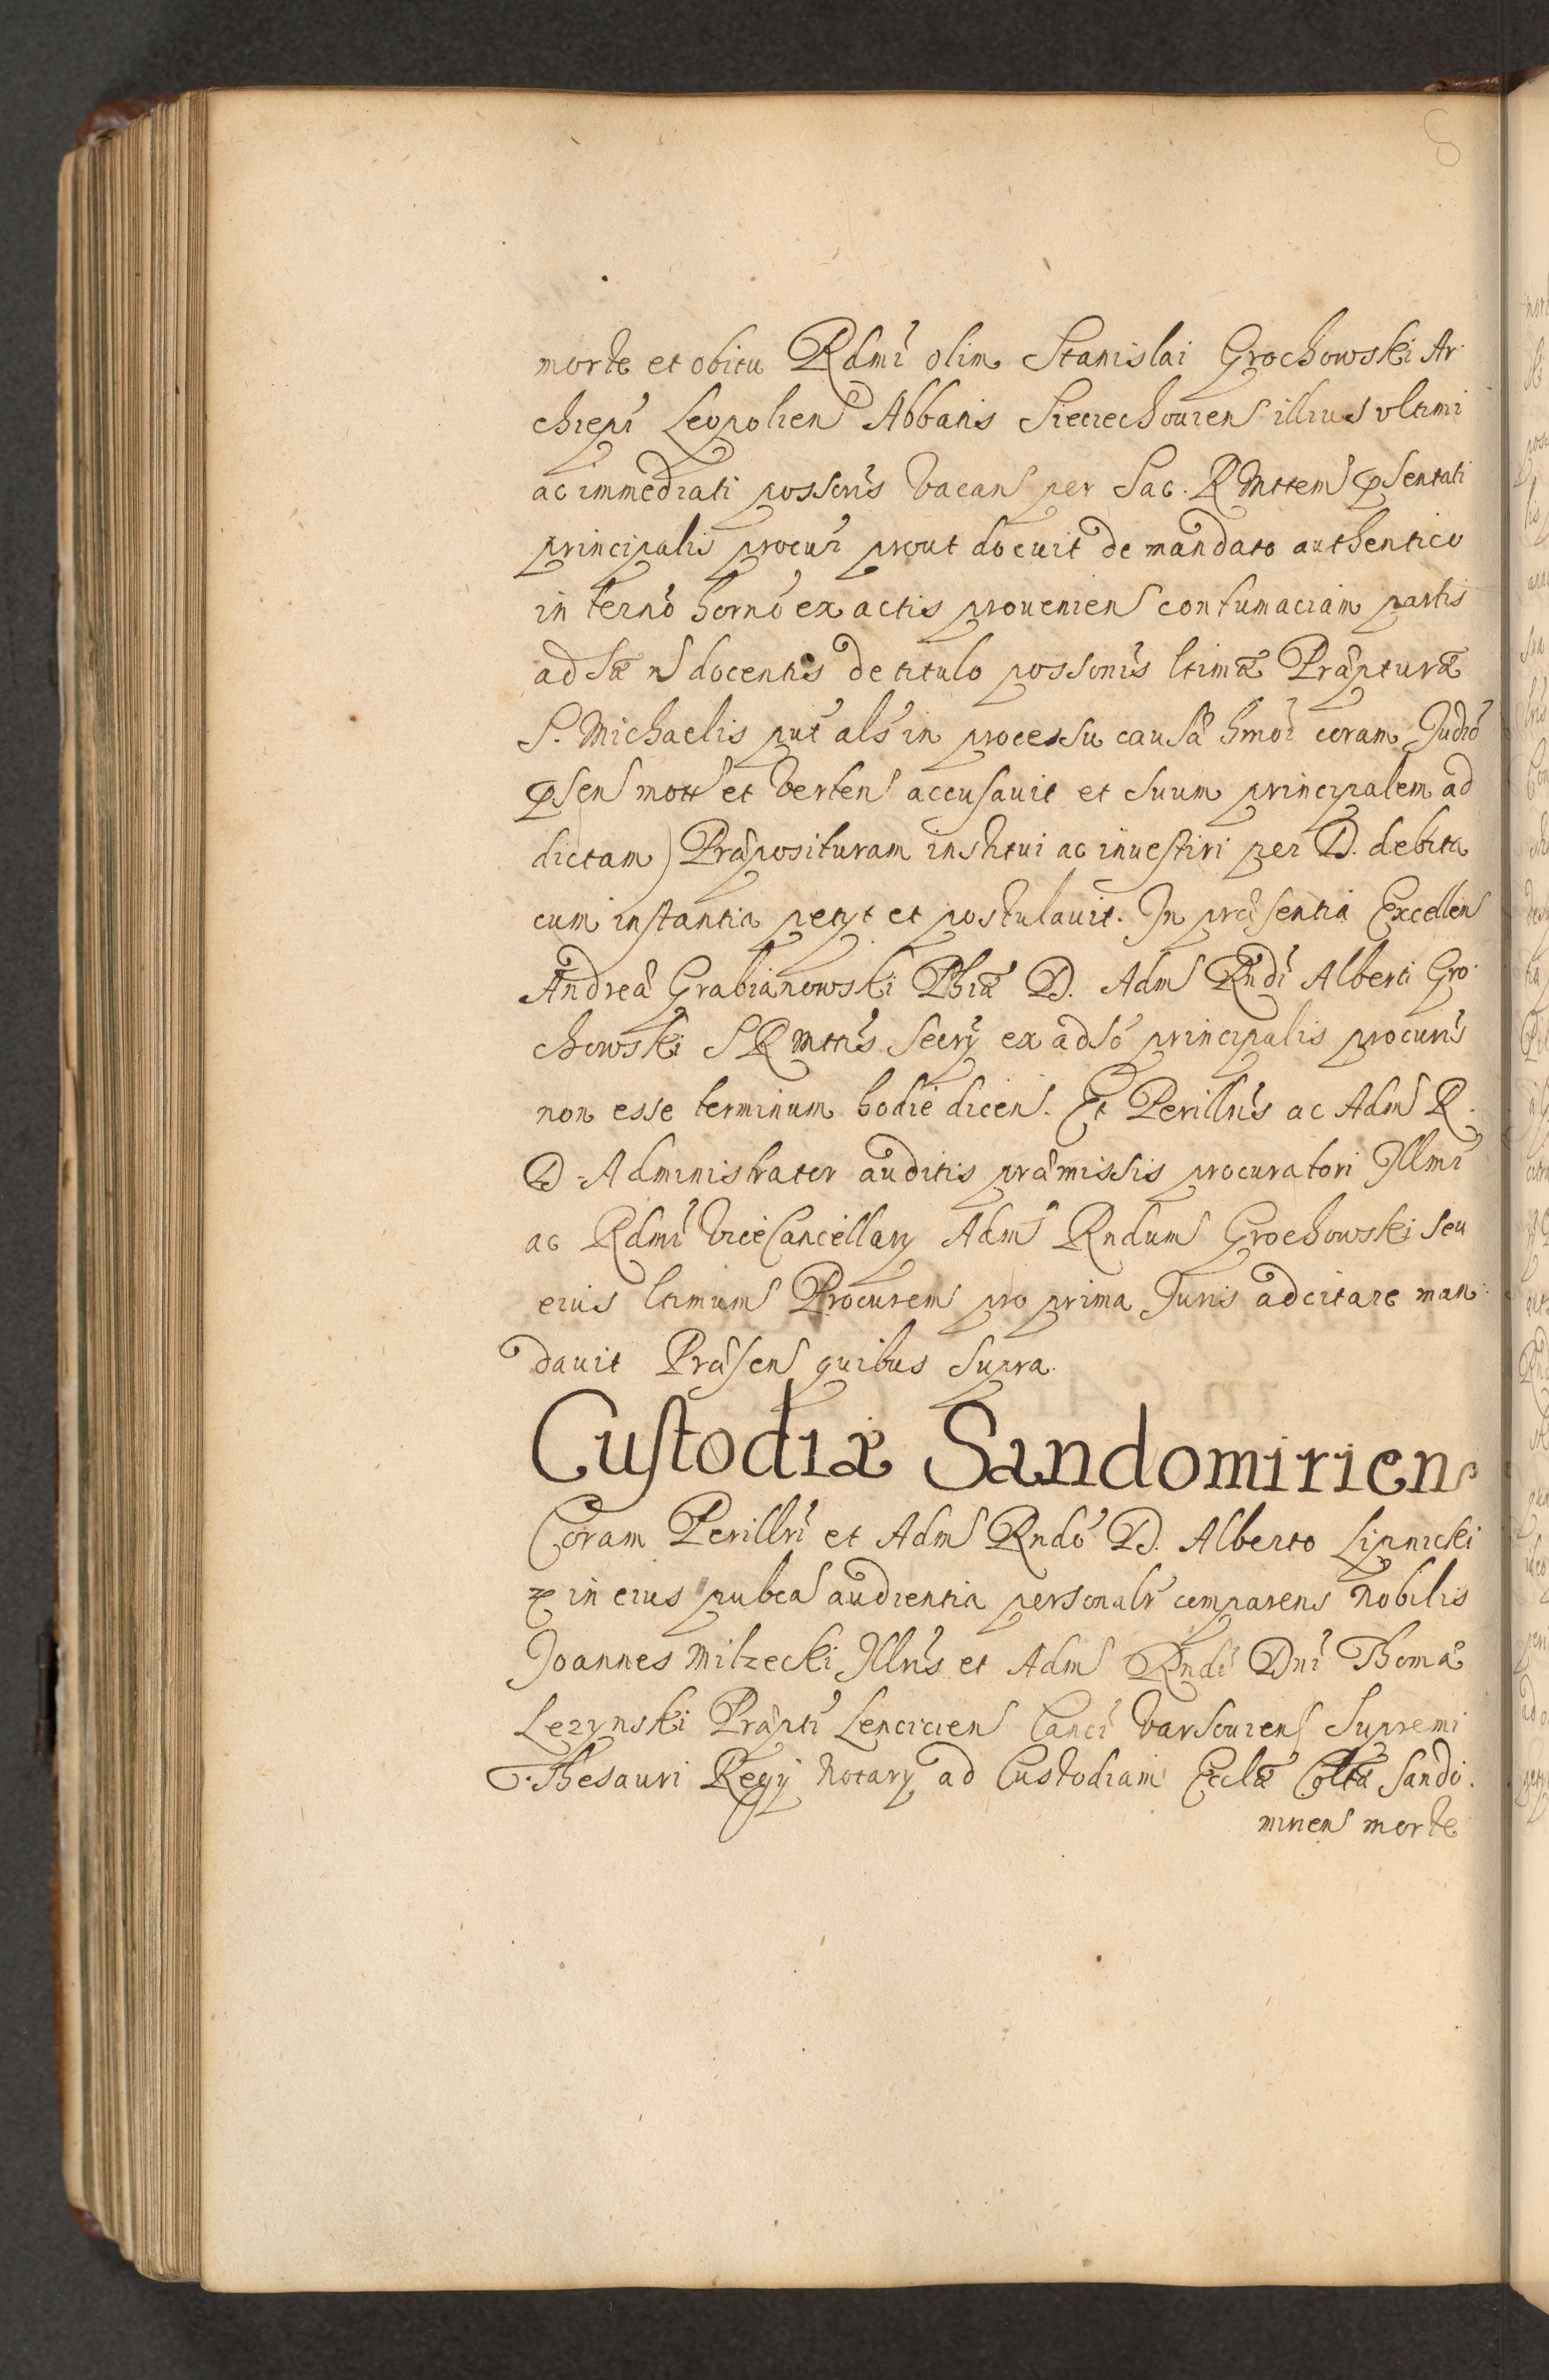 morte et obitu Rdmi olim Stanislai Grochowski Ar
chiepi Leopolien Abbatis Sieciechouien illius vltimi
ac immediati possoris vacan per Sac. R Mttem psentati
principalis procur prout docuit de mandato authentico
in termo horno ex actis prouenien contumaciam partis
ad sæ n docentis de titulo possonis ltimæ Præpturæ
S. Michaelis put als in processu causæ hmoi coram Judio
psen mott et verten accusauit et suum principalem ad
dictam Præposituram institui ac inuestiri per D. debita
cum instantia petyt et postulauit. In præsentia Excellen
Andreæ Grabianowski Phiæ D. Adm Rndi Alberti Gro
chowski S R Mttis Secry ex adso principalis procuris
non esse terminum hodie dicen. Et Perillris ac Adm R.
D. Administrator auditis præmissis procuratori Illmi
ac Rdmi ViceCancellary Adm Rndum Grochowski seu
eius ltimum Procurem pro prima Juris adcitare man
dauit Præsen quibus supra.
Custodiæ Sandomirien
Coram Perillri et Adm Rndo D. Alberto Lipnicki
in eius pubca audientia personalr comparens Nobilis
Joannes Milzecki Illris et Adm Rndi Dni Thomæ
Lezynski Præpti Lencicien Canci Varsouien Supremi
Thesauri Regy Notary ad Custodiam Eccle Coltæ Sando.
mirien morte